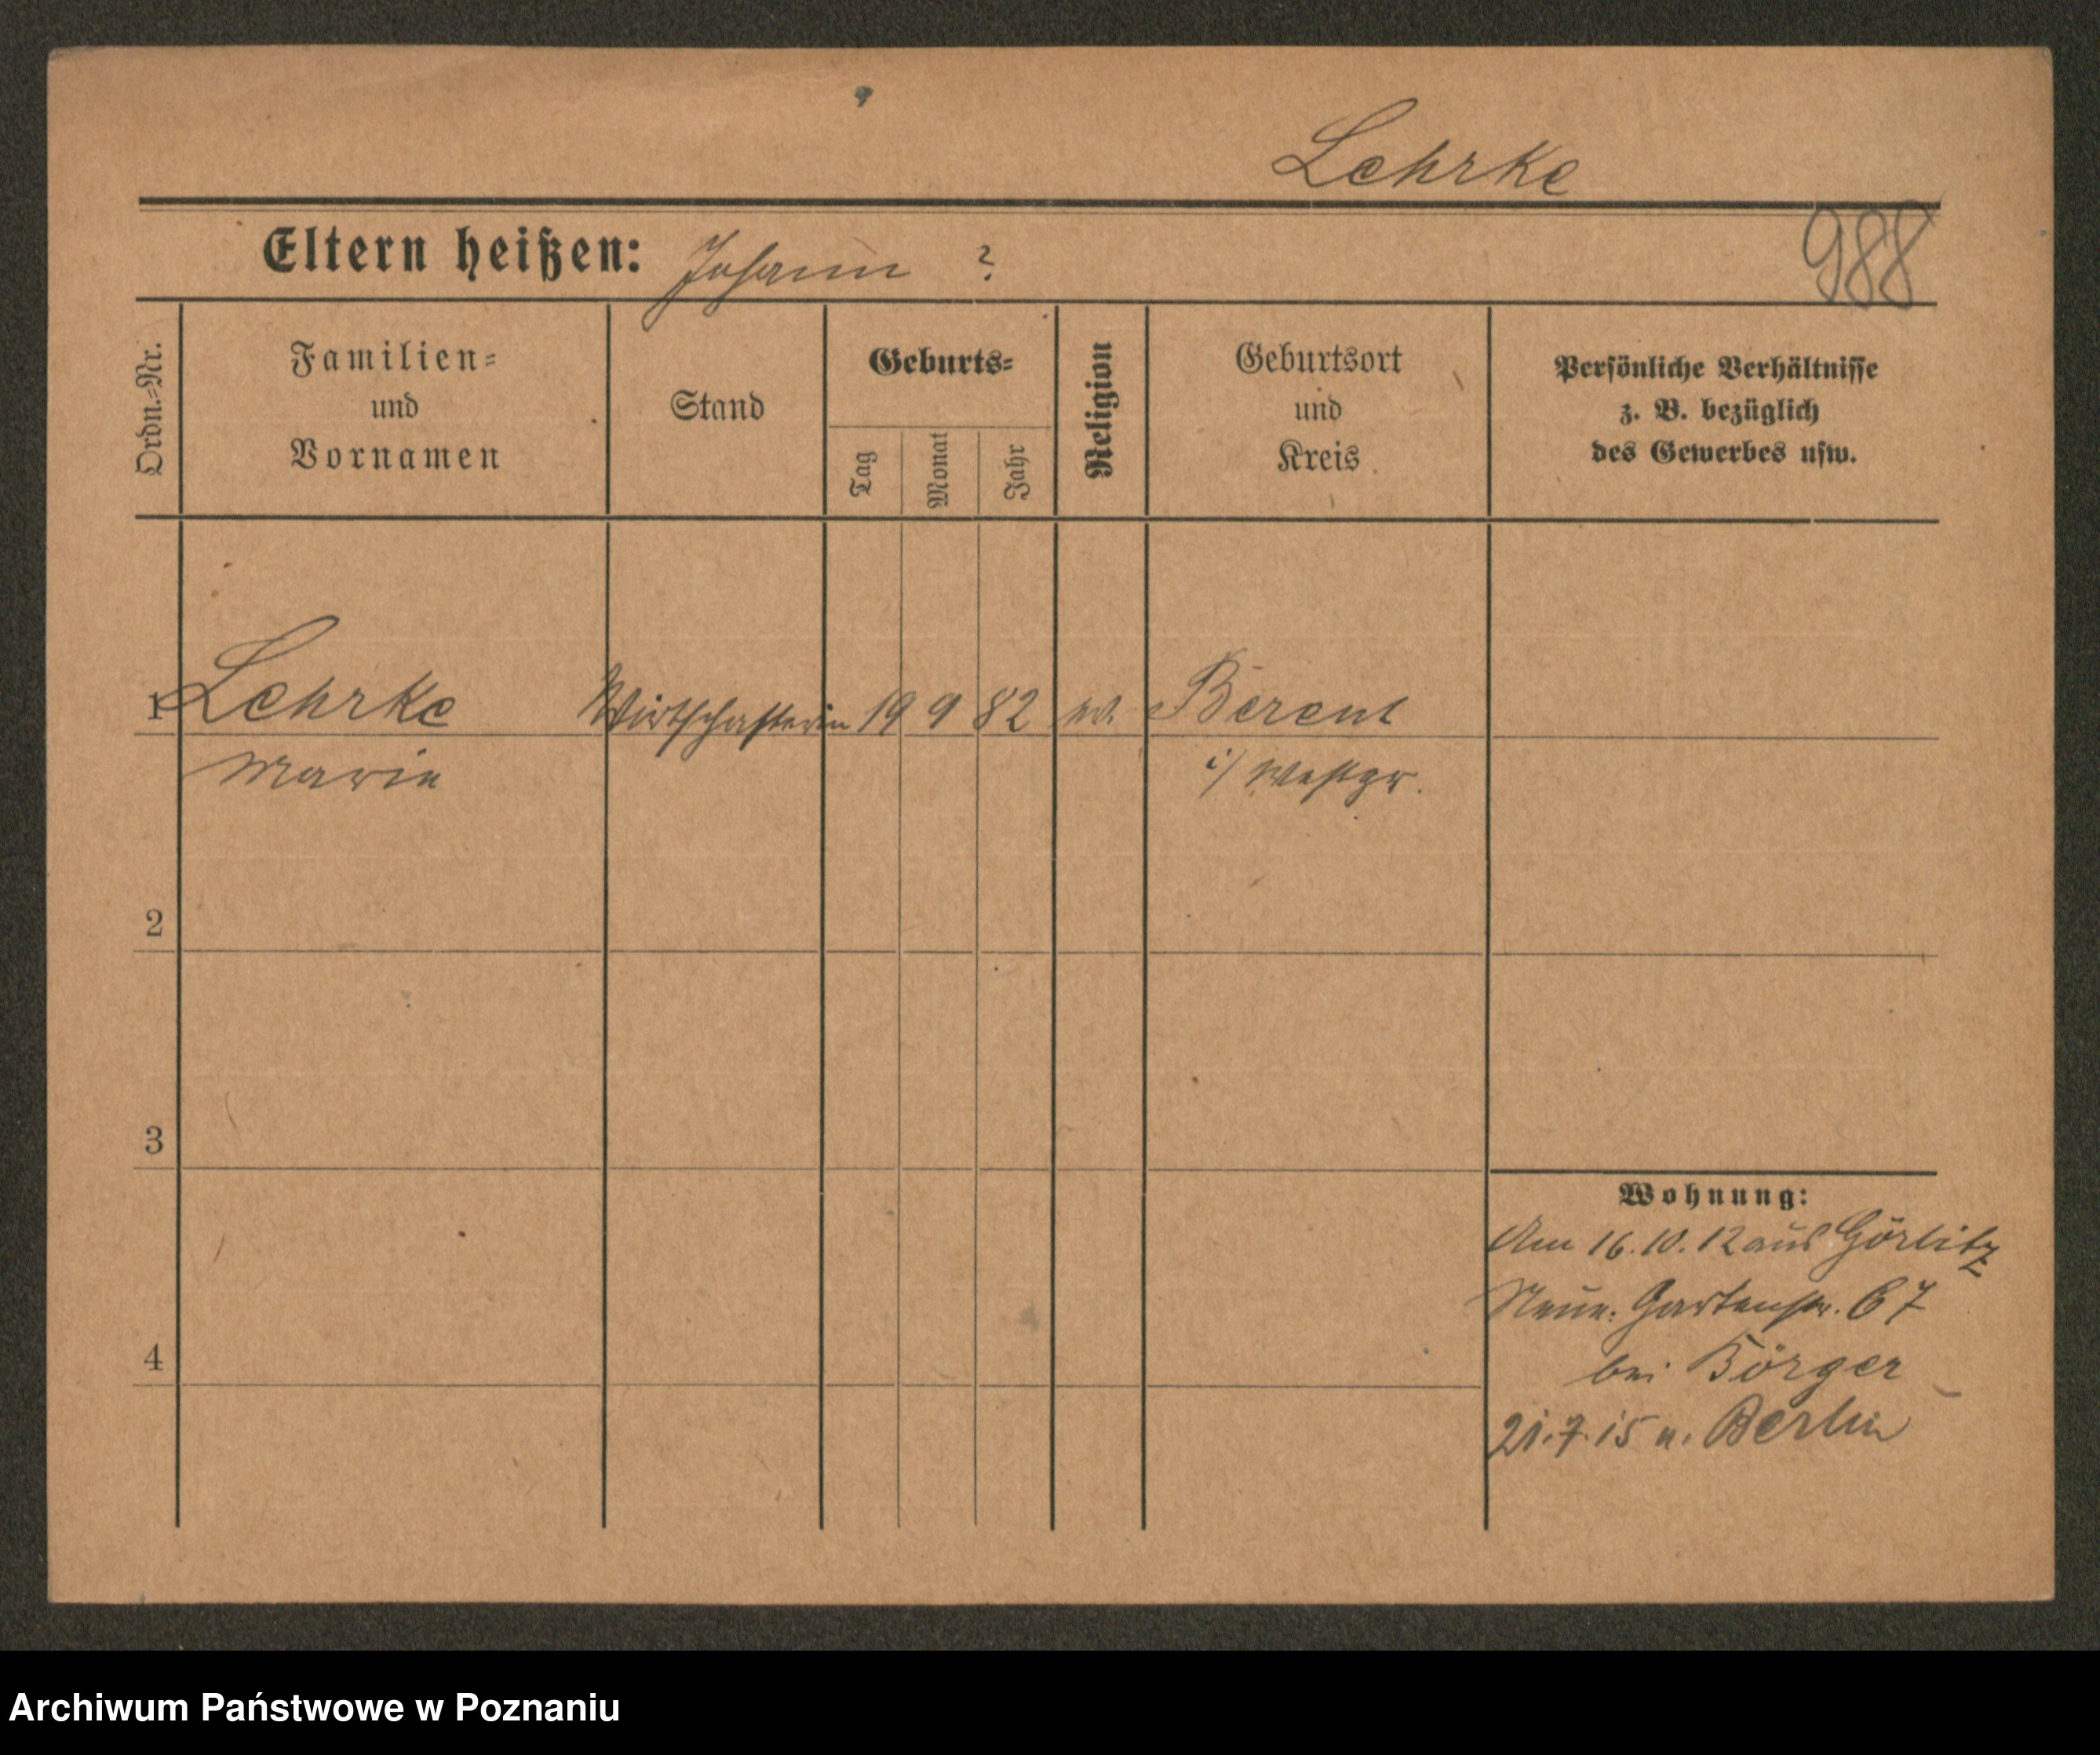 Lehrke
Eltern heißen: Johann ?
988
Ordn.-Nr.
Familien-
und
Vornamen
Stand
Geburts-
Tag
Monat
Jahr
Religion
Geburtsort
und
Kreis
Persönliche Verhältnisse
z. B. bezüglich
des Gewerbes usw.
1 Lehrke Wirtschafterin 19 9 82 ev. Berent
Marie i/ Westpr.
2
3
4
Wohnung:
Am 16.10.12 aus Görlitz
Neue Gartenstr. 67
bei Börger
21.7.15 n. Berlin
Archiwum Państwowe w Poznaniu